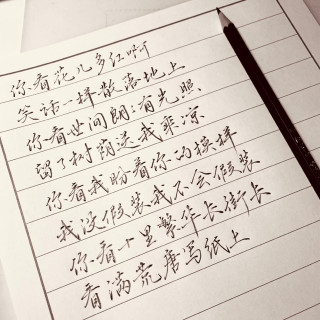 你看花儿多红啊
笑话一样散落地上
你看世间朗朗有光照
留了树荫送我乘凉
你看我盼着你的模样
我没假装我不会假装
你看十里繁华长街长
看满荒唐写纸上